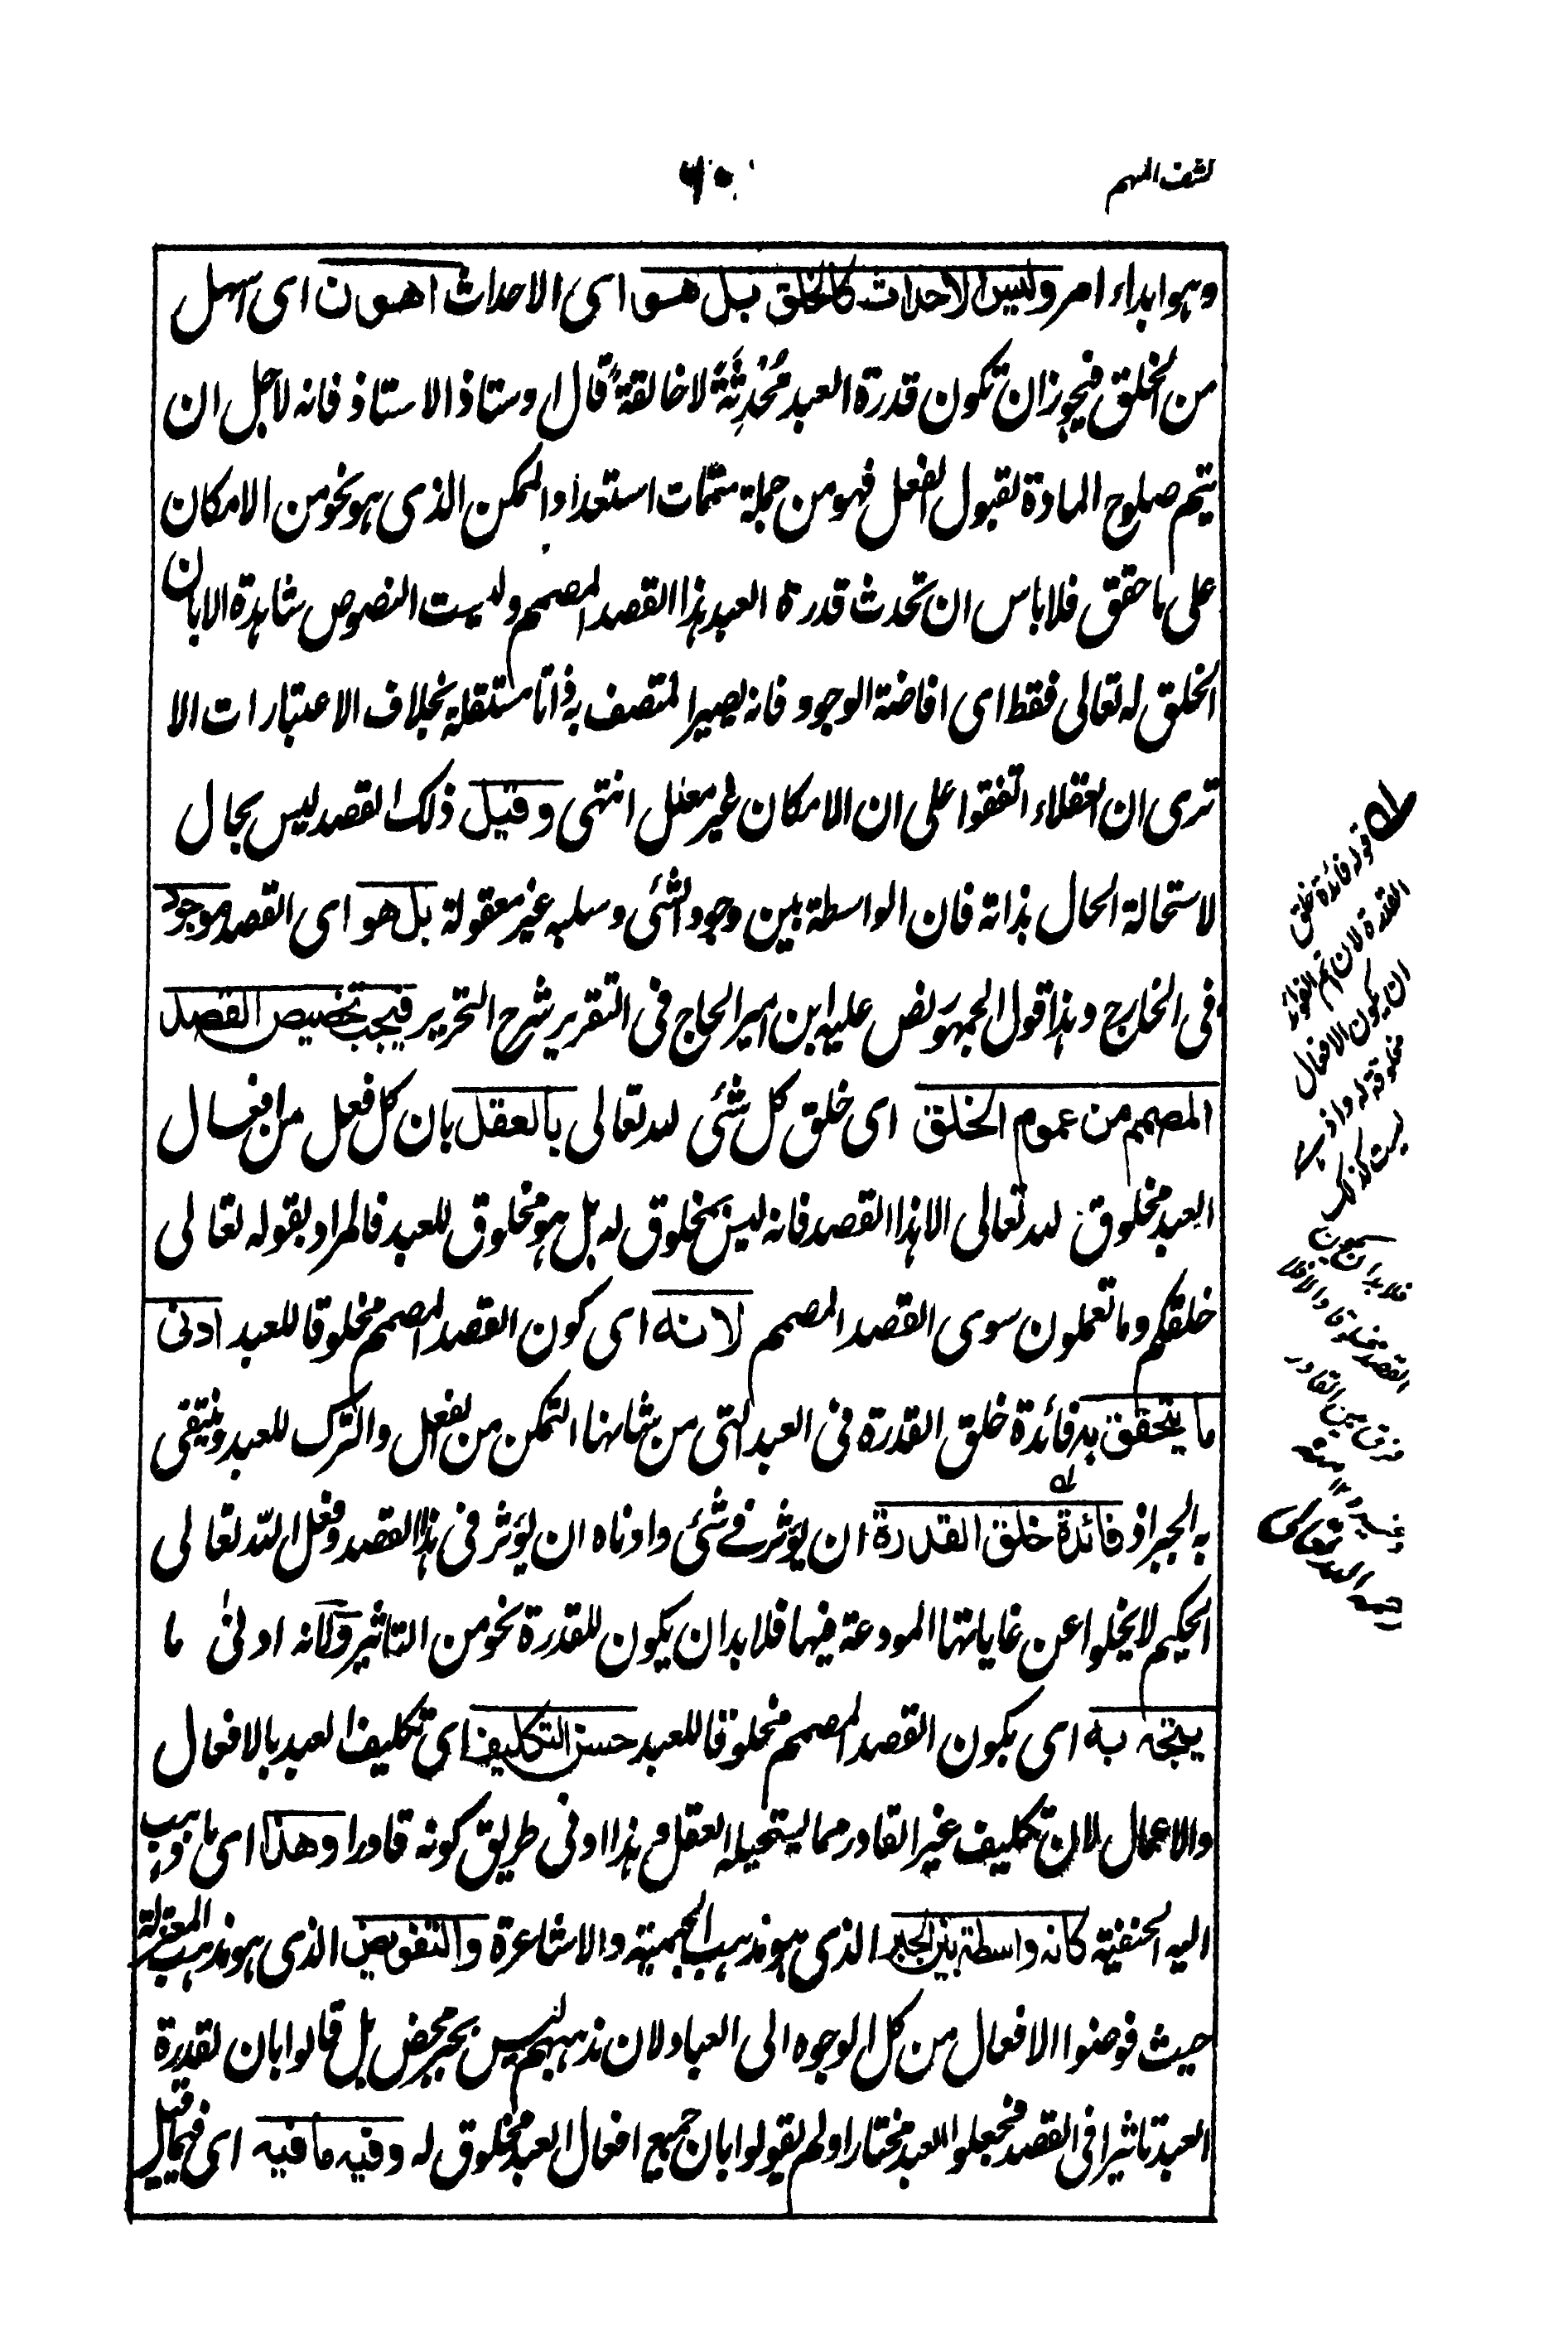 كشف المبهم
٦٠
وهو ابداء امر وليس الاحداث كالخلق بل هو اى الاحداث اهون اى اسهل
من الخلق فيجوز ان تكون قدرة العبد مُحْدِثَةً لا خالقةً قال اوستاذ الاستاذ فانه لاجل ان
يتم صلوح المادة لقبول الفعل فهو من جملة متممات استعداد الممكن الذى هو نحو من الامكان
على ما حقق فلا باس ان تحدث قدرة العبد هذا القصد المصمم وليست النصوص شاهدة الا بان
الخلق له تعالى فقط اى افاضة الوجود فانه يصير المتصف به ذاتا مستقلة بخلاف الاعتبارات الا
ترى ان العقلاء اتفقوا على ان الامكان غير معلل انتهى وقيل ذلك القصد ليس بحال
لاستحالة الحال بذاته فان الواسطة بين وجود الشئ وسلبه غير معقولة بل هو اى القصد موجود
فى الخارج وهذا قول الجمهور نص عليه ابن امير الحاج فى التقرير شرح التحرير فيجب تخصيص القصد
المصمم من عموم الخلق اى خلق كل شئ لله تعالى بالعقل بان كل فعل من افعال
العبد مخلوق لله تعالى الا هذا القصد فانه ليس بمخلوق له بل هو مخلوق للعبد فالمراد بقوله تعالى
خلقكم وما تعملون سوى القصد المصمم لانه اى كون القصد المصمم مخلوقا للعبد ادنى
ما يتحقق به فائدة خلق القدرة فى العبد التى من شانها التمكن من الفعل والترك للعبد وينتفى
به الجبر اذ فائدة خلق القدرة ان يؤثر فے شئ وادناه ان يؤثر فى هذا القصد وفعل الله تعالى
الحكيم لا يخلوا عن غاياتها المودعة فيها فلا بد ان يكون للقدرة نحو من التاثير ولانه ادنىٰ ما
يتجه به اى بكون القصد المصمم مخلوقا للعبد حسن التكليف اى تكليف العبد بالافعال
والاعمال لان تكليف غير القادر مما يستحيله العقل وهذا ادنى طريق كونه قادرا وهذا اى ما ذهب
اليه الحنفية كانه واسطة بين الجبر الذى هو مذهب الجهمية والاشاعرة والتفويض الذى هو مذهب المعتزلة
حيث فوضوا الافعال من كل الوجوه الى العباد لان مذهبهم ليس بجبر محض بل قالوا بان لقدرة
العبد تاثيرا فى القصد فجعلوا العبد مختارا ولم يقولوا بان جميع افعال العبد مخلوق له وفيه ما فيه اى فيما قيل
له قوله فائدة خلق
القدرة لان اهم الفوائد
ان يكون الافعال
مخلوقة له واذ
ليست كذلك
فلا بد ان يكون
القصد مخلوقا والا فلا
فرق بين القادر
وغيره ١٢ منه
رحمه الله تعالى